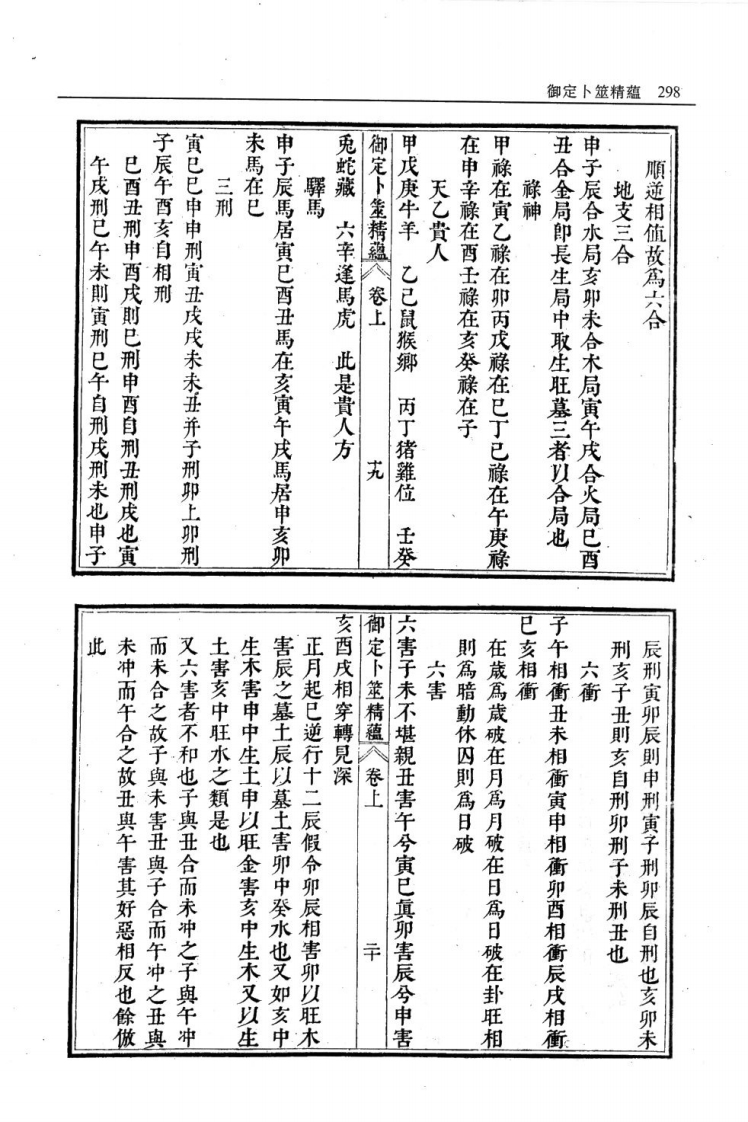 御定卜筮精蘊 298
順逆相值故爲六合
地支三合
申子辰合水局亥卯未合木局寅午戌合火局巳酉
丑合金局卽長生局中取生旺墓三者以合局也
祿神
甲祿在寅乙祿在卯丙戊祿在巳丁己祿在午庚祿
在申辛祿在酉壬祿在亥癸祿在子
天乙貴人
甲戊庚牛羊 乙己鼠猴鄉 丙丁猪雞位 壬癸
御定卜筮精蘊 卷上 十九
兎蛇藏 六辛逢馬虎 此是貴人方
驛馬
申子辰馬居寅巳酉丑馬在亥寅午戌馬居申亥卯
未馬在巳
三刑
寅巳巳申申刑寅丑戌戌未未丑幷子刑卯上卯刑
子辰午酉亥自相刑
巳酉丑刑申酉戌則巳刑申酉自刑丑刑戌也寅
午戌刑巳午未則寅刑巳午自刑戌刑未也申子
辰刑寅卯辰則申刑寅子刑卯辰自刑也亥卯未
刑亥子丑則亥自刑卯刑子未刑丑也
六衝
子午相衝丑未相衝寅申相衝卯酉相衝辰戌相衝
巳亥相衝
在歲爲歲破在月爲月破在日爲日破在卦旺相
則爲暗動休囚則爲日破
六害
六害子未不堪親丑害午兮寅巳眞卯害辰兮申害
御定卜筮精蘊 卷上 二十
亥酉戌相穿轉見深
正月起巳逆行十二辰假令卯辰相害卯以旺木
害辰之墓土辰以墓土害卯中癸水也又如亥中
生木害申中生土申以旺金害亥中生木又以生
土害亥中旺水之類是也
又六害者不和也子與丑合而未冲之子與午冲
而未合之故子與未害丑與子合而午冲之丑與
未冲而午合之故丑與午害其好惡相反也餘倣
此